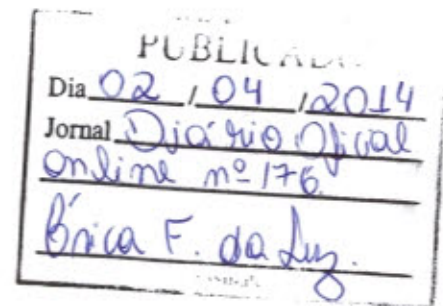 PUBLICADO
Dia 02 / 04 / 2014
Jornal Diário Oficial
online nº 176.
Érica F. da Luz.